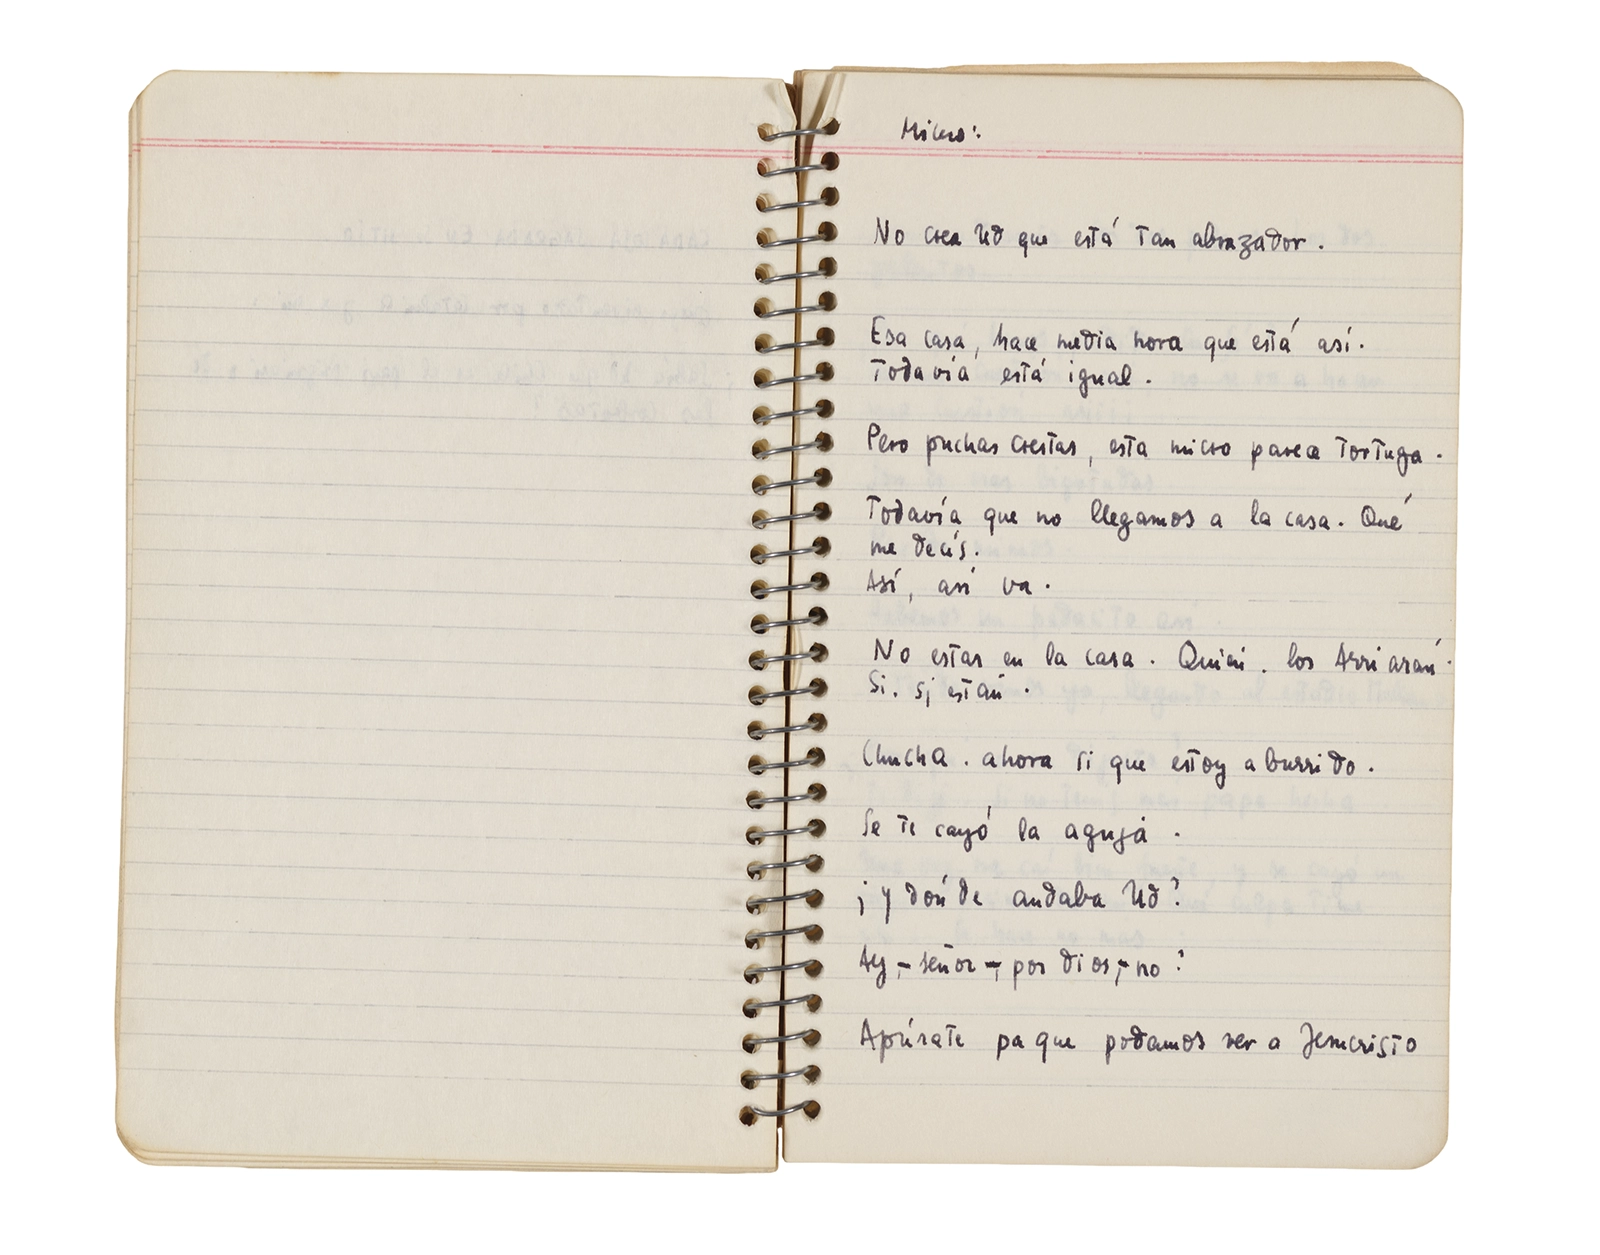 Micro:
No crea Ud que está tan abrazador.
Esa casa, hace media hora que está así.
Todavía está igual.
Pero puchas crestas, esta micro parece tortuga.
Todavía que no llegamos a la casa. Qué
me decís.
Así, así va.
No estas en la casa. Quién. los Arriarán.
Si. si están.
Chucha. ahora si que estoy aburrido.
Se te cayó la aguja.
¡y dónde andaba Ud?
Ay,-señor-,por dios,-no?
Apúrate pa que podamos ver a Jesucristo